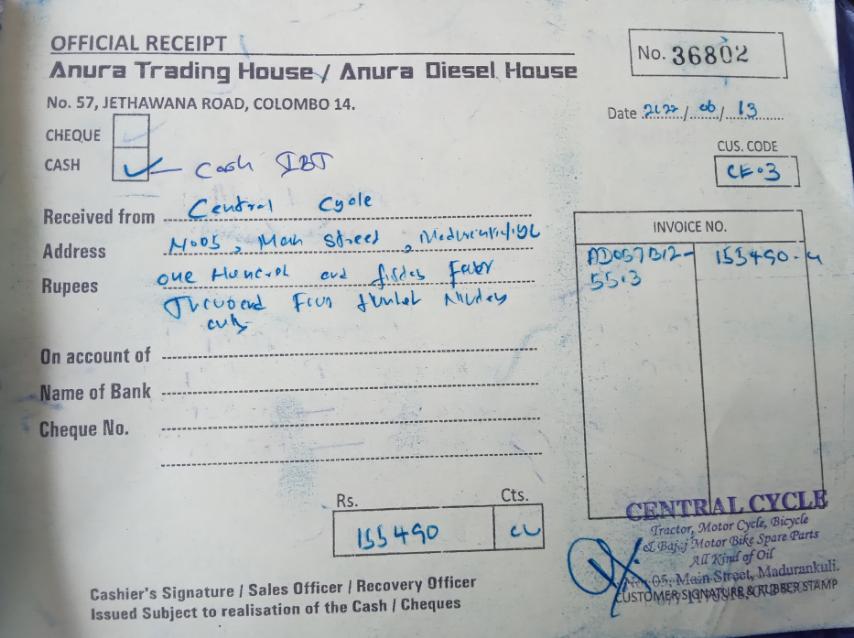 OFFICIAL RECEIPT
Anura Trading House / Anura Diesel House
No. 57, JETHAWANA ROAD, COLOMBO 14.
No. 36802
Date 2022/06/13
CHEQUE
CASH Cash IBT
CUS. CODE
CE-3
Received from Central Cycle
Address No05, Main Street,
Rupees one Hundred and
Four Hundred
On account of
Name of Bank
Cheque No.
INVOICE NO.
AD057B12- 155490
55.3
Rs. Cts.
155490
Cashier's Signature / Sales Officer / Recovery Officer
Issued Subject to realisation of the Cash / Cheques
CENTRAL CYCLE
Tractor, Motor Cycle, Bicycle
& Bajaj Motor Bike Spare Parts
All Kind of Oil
No. 05, Main Street, Madurankuli.
CUSTOMER SIGNATURE & RUBBER STAMP